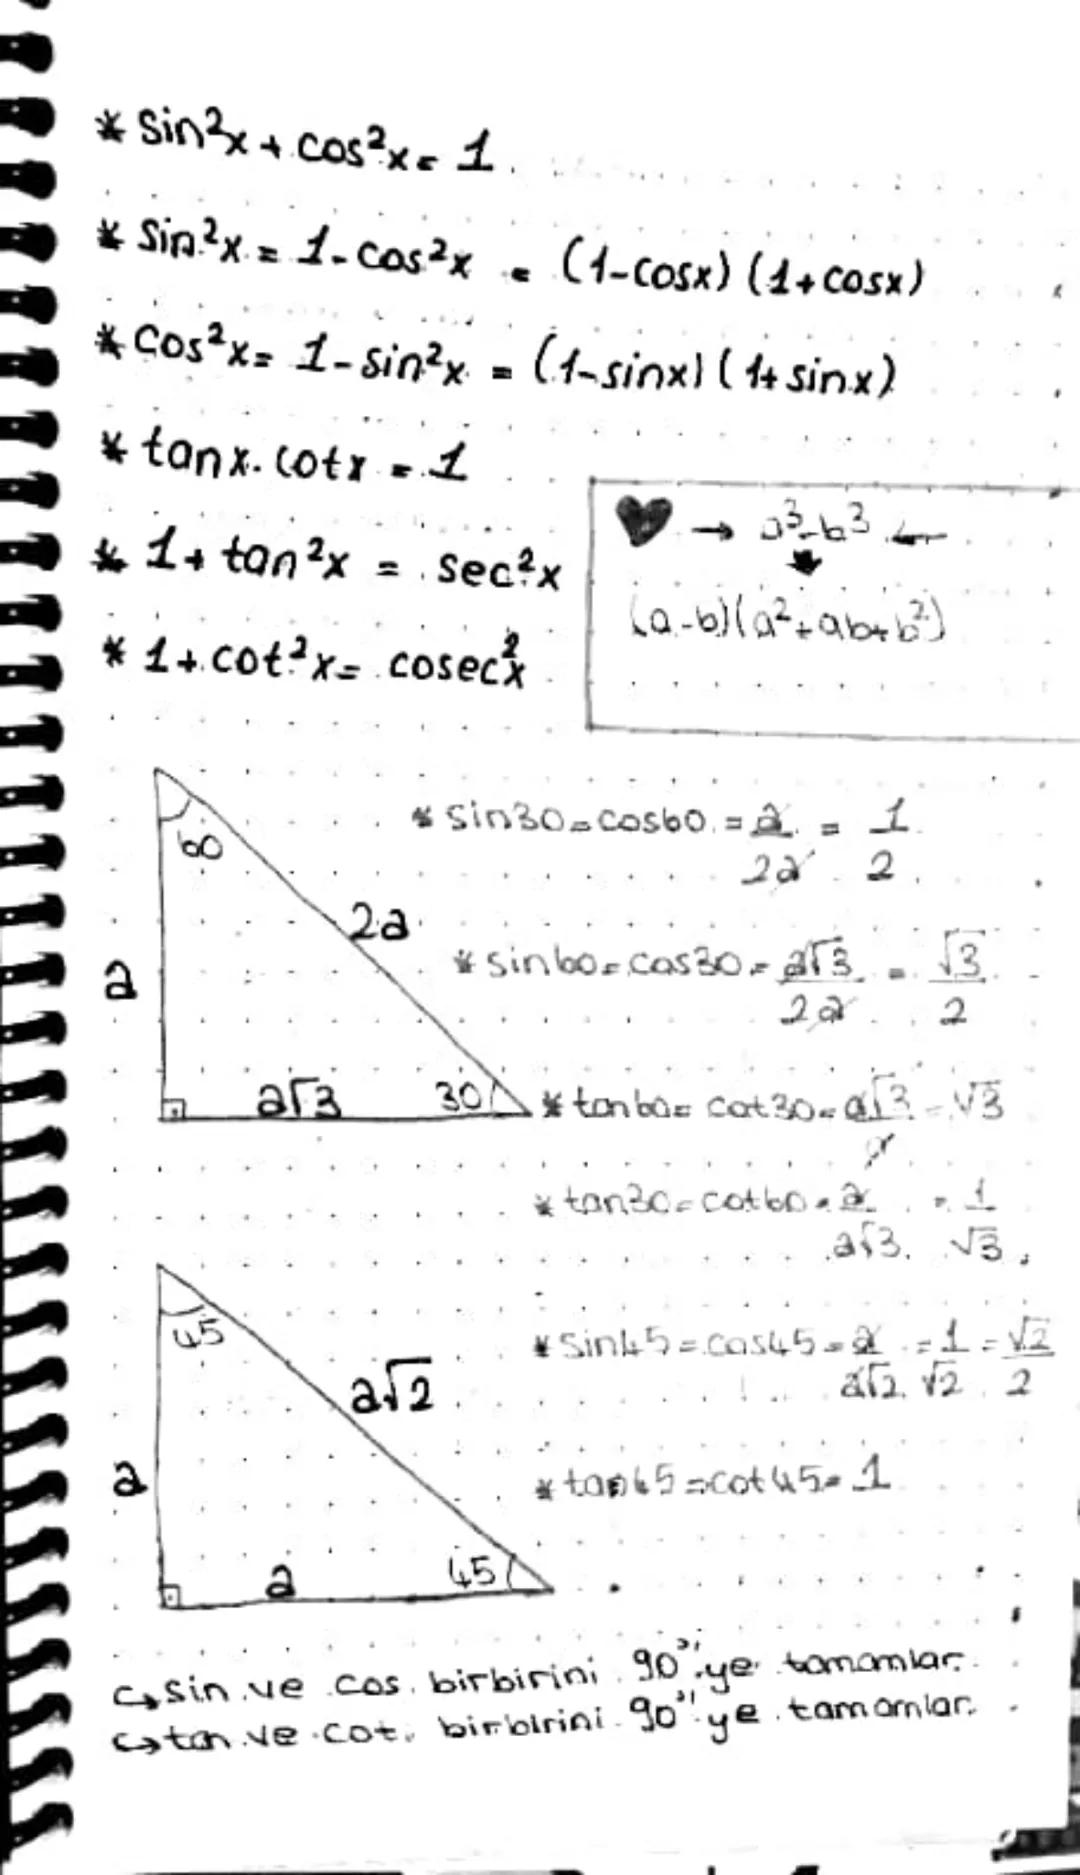 * sin²x + cos²x = 1
* sin²x = 1 - cos²x = (1-cosx) (1+cosx)
* cos²x = 1 - sin²x = (1-sinx) (1+sinx)
* tanx . cotx = 1
* 1 + tan²x = sec²x
* 1 + cot²x = cosec²x
♥ → a³-b³ ←
↓
(a-b)(a²+ab+b²)
60
2a
a
a√3
30
* sin30 = cos60 = a/2a = 1/2
* sin60 = cos30 = a√3/2a = √3/2
* tan60 = cot30 = a√3/a = √3
* tan30 = cot60 = a/a√3 = 1/√3
45
a√2
a
a
45
* sin45 = cos45 = a/a√2 = 1/√2 = √2/2
* tan45 = cot45 = 1
↪ sin ve cos birbirini 90°'ye tamamlar.
↪ tan ve cot birbirini 90°'ye tamamlar.